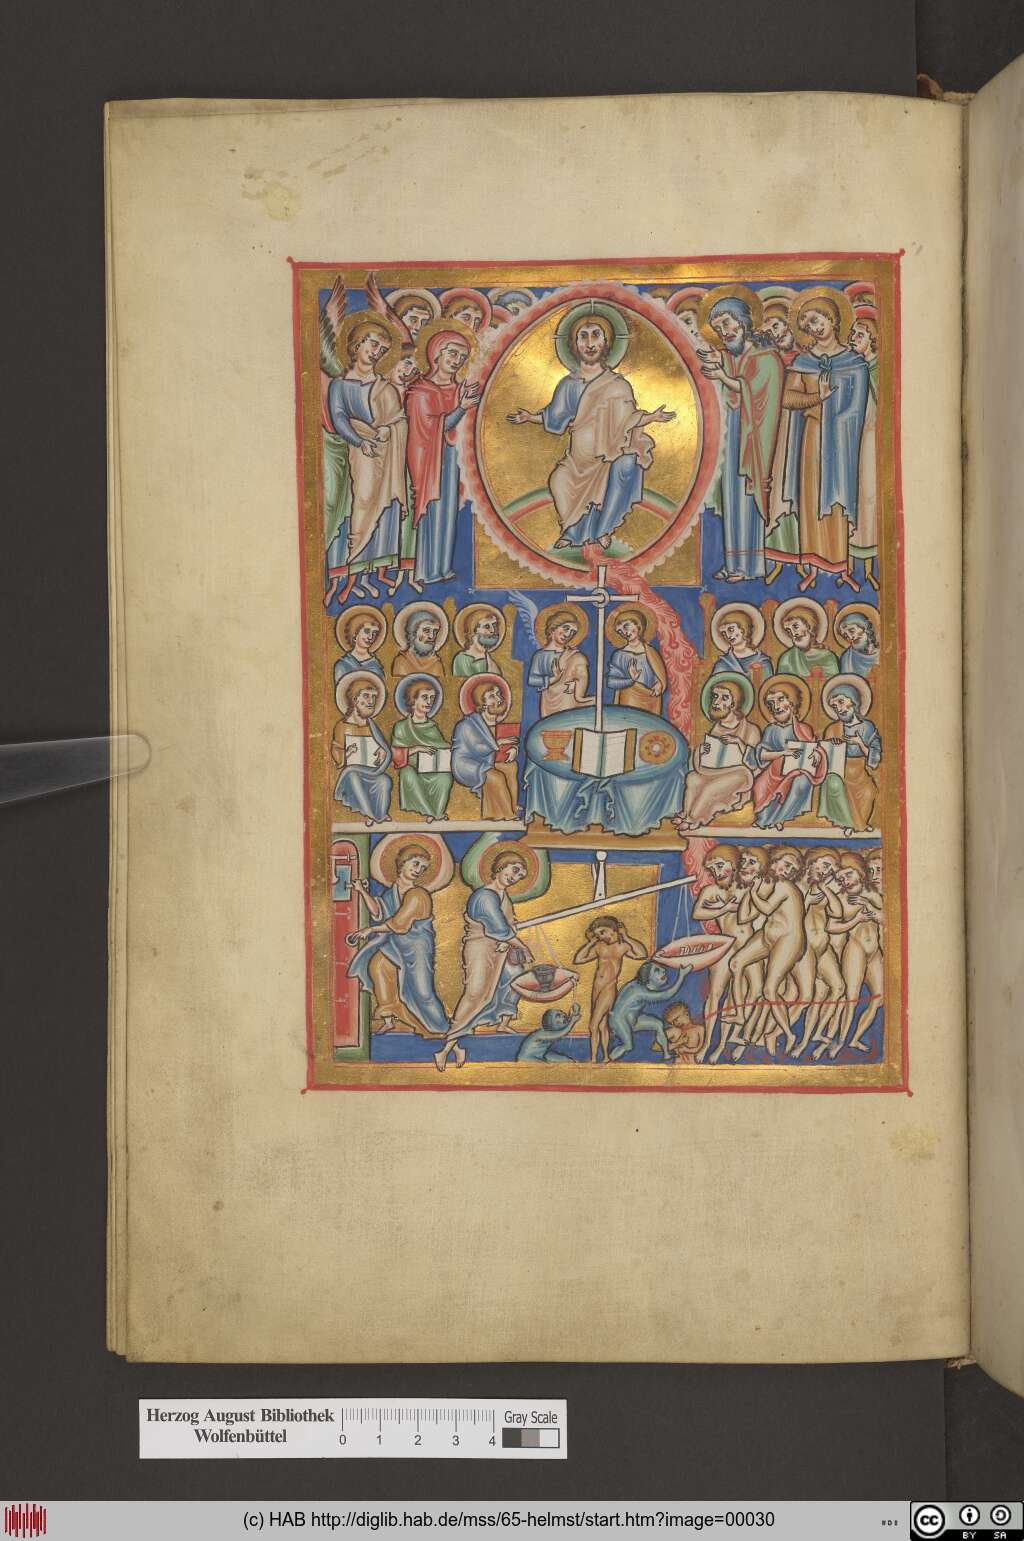 Herzog August Bibliothek
Wolfenbüttel
0 1 2 3 4
Gray Scale
(c) HAB http://diglib.hab.de/mss/65-helmst/start.htm?image=00030
cc
BY SA